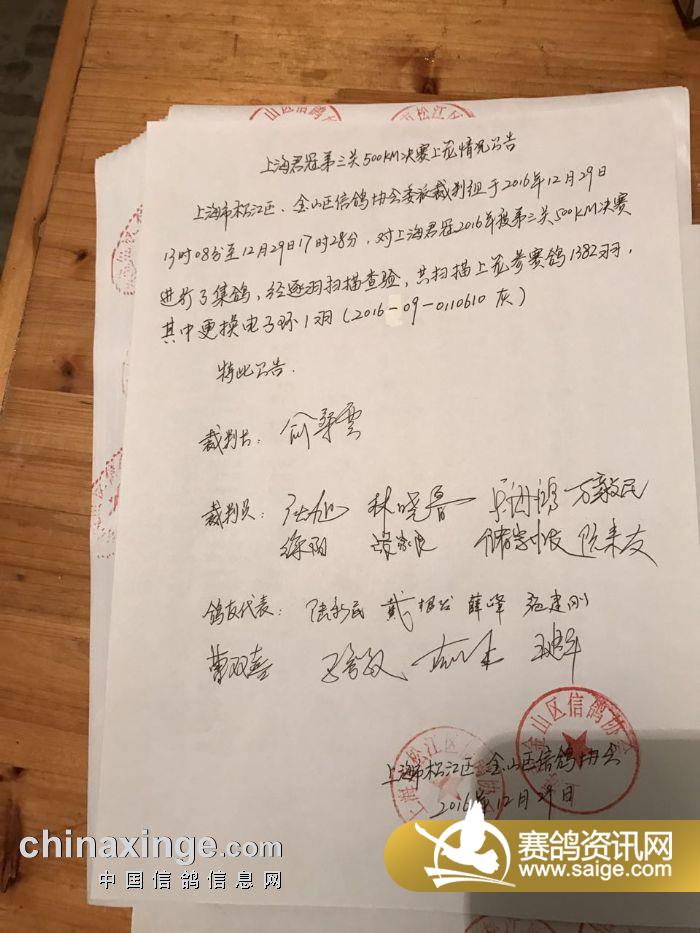 山区信鸽协
市松江区
上海君冠第三关500KM决赛上笼情况公告
上海市松江区、金山区信鸽协会委派裁判组于2016年12月29日
13时08分至12月29日17时28分,对上海君冠2016年秋第三关500KM决赛
进行了集鸽,经逐羽扫描查验,共扫描上笼参赛鸽1382羽,
其中更换电子环1羽(2016-09-0110610 灰)
特此公告.
裁判长:
裁判员: 林晓
徐阳
鸽友代表: 陆新民 戴 薛峰 施建刚
曹双喜
金山区信鸽协会
上海市松江区
上海市松江区 金山区信鸽协会
2016年12月29日
chinaxinge.com
中国信鸽信息网
赛鸽资讯网
www.saige.com